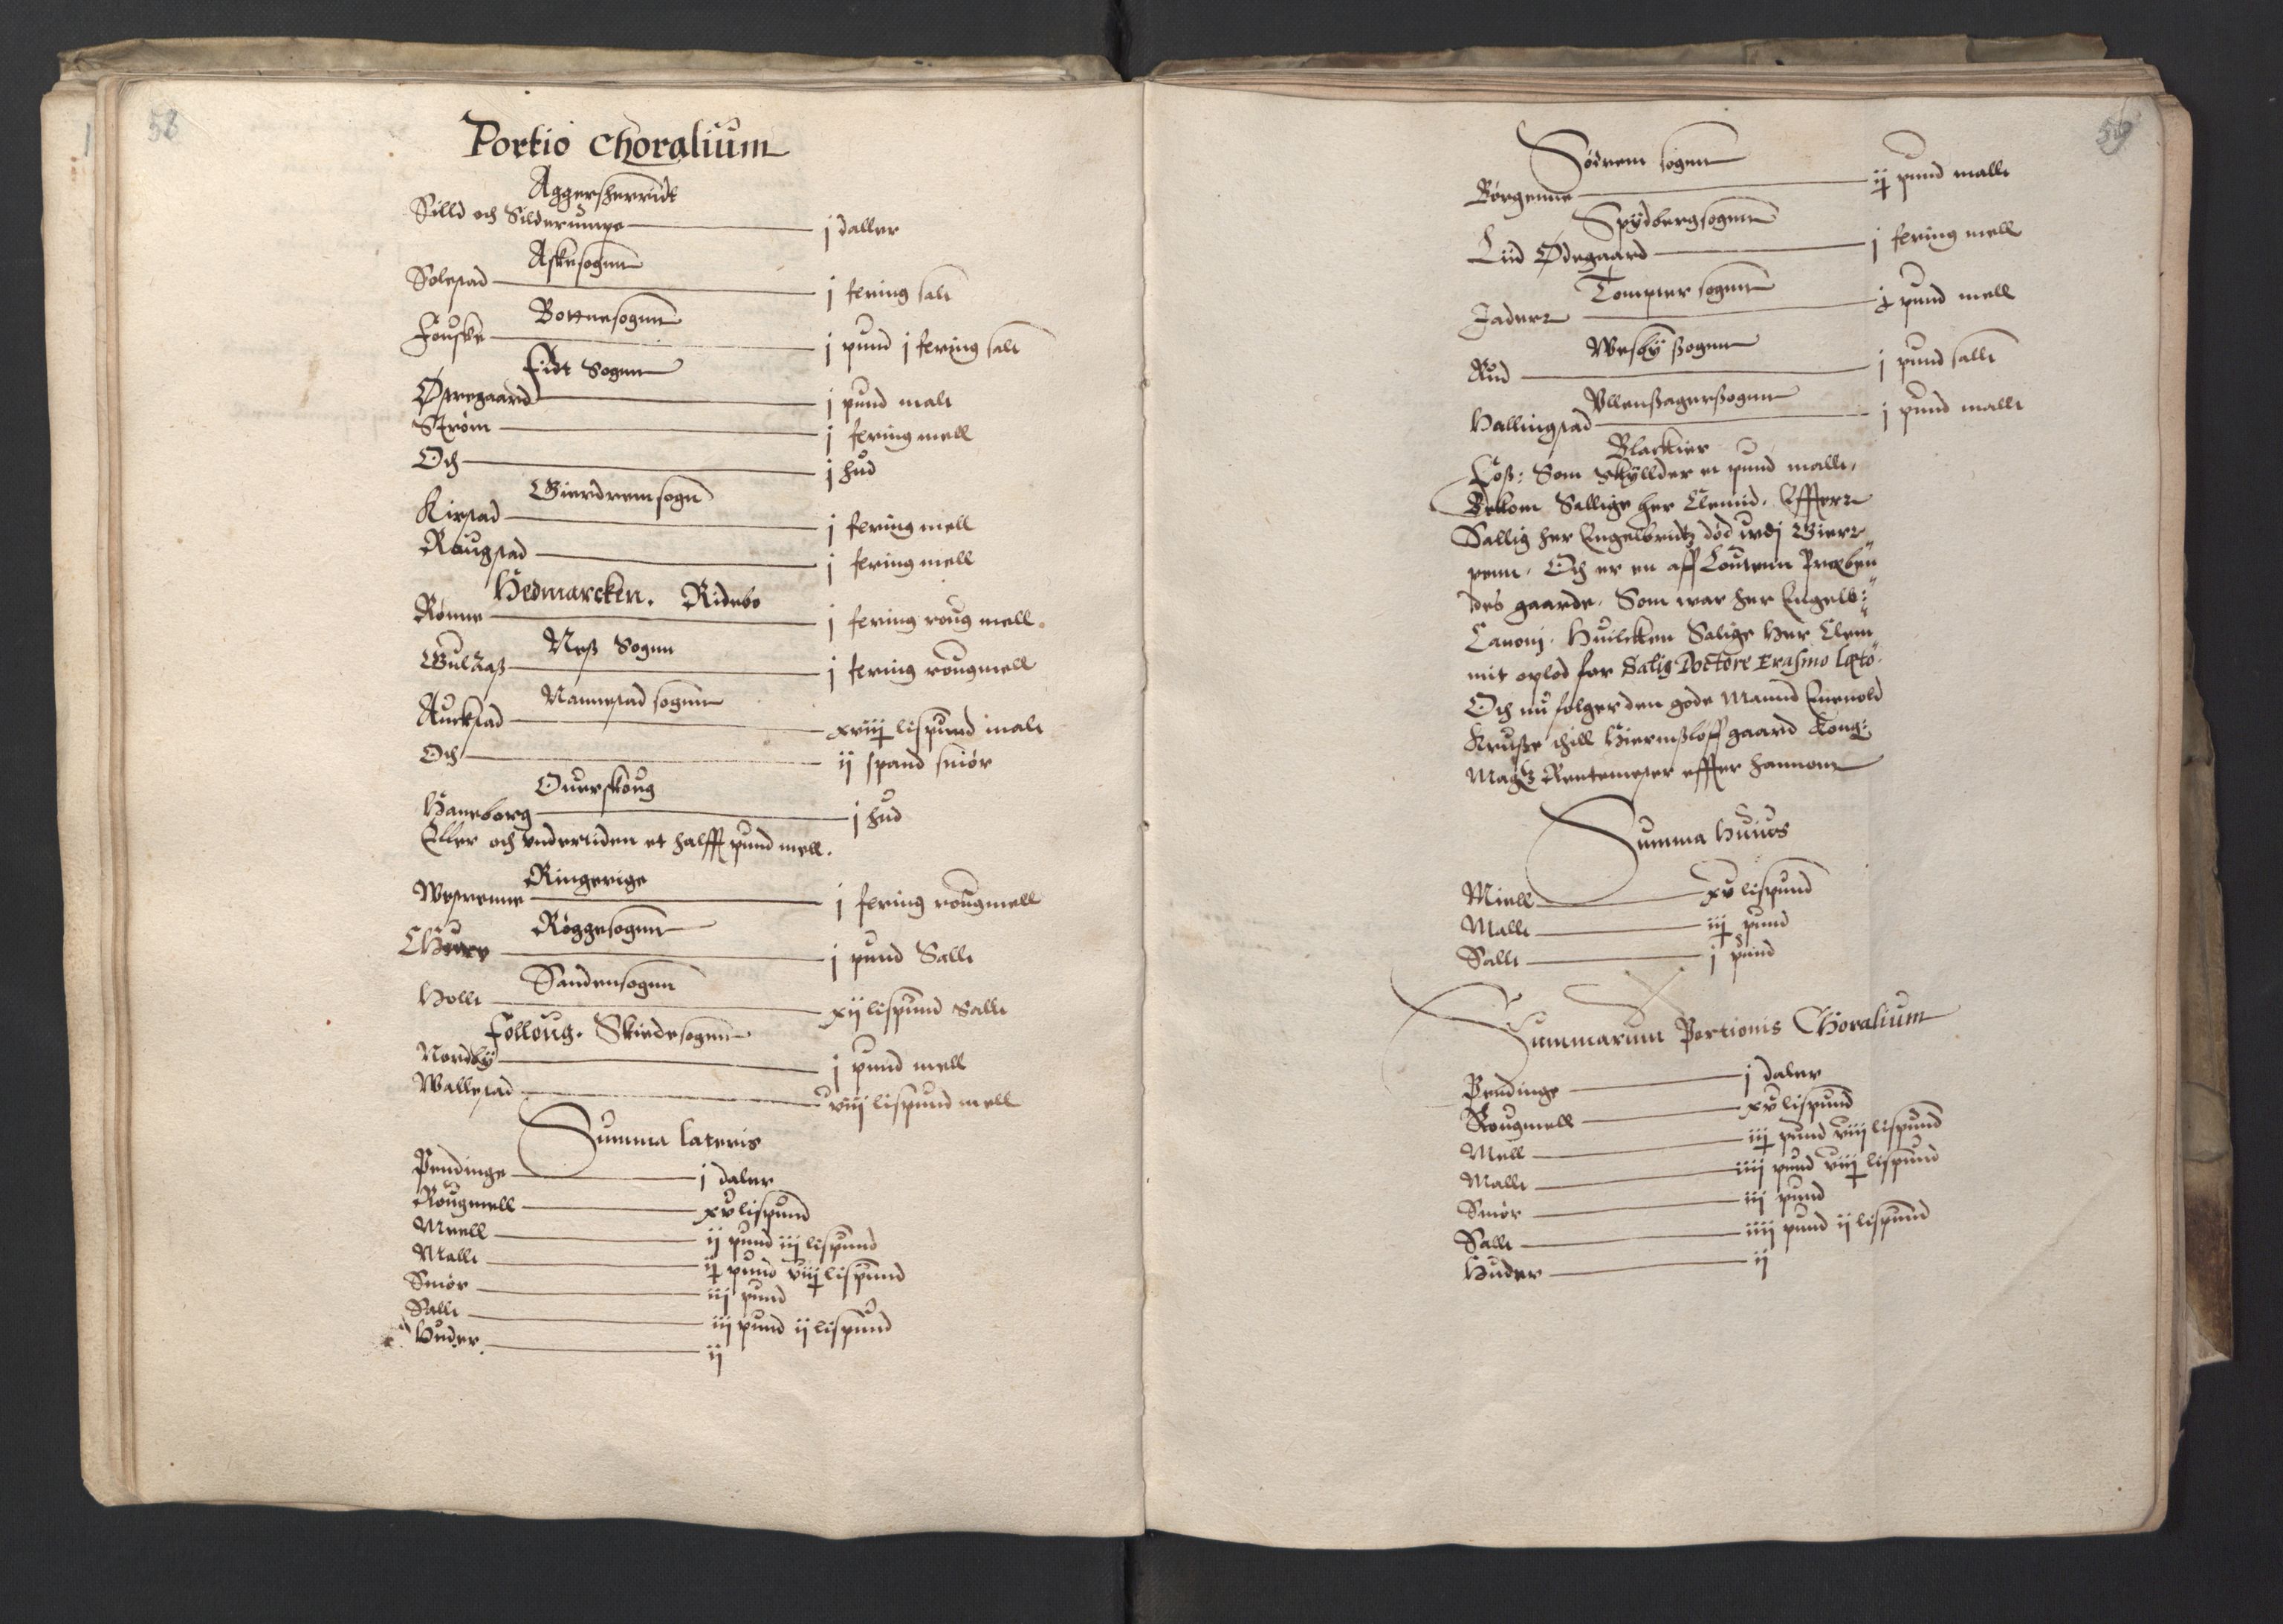 58
Portio Choralium
Aggersherridt
Silld och Silderumpe j daller
Askesognn
Solestad j fering salt
Bottnesognn
Fouske j pund j fering salt
Fidt Sognn
Østregaard j pund malt
Strøm j fering mell
Och j hud
Gierdremsogn
Kirstad j fering mell
Raugstad j fering mell
Hedmarcken. Ridebo
Rønne j fering roug mell.
Neß Sognn
Gulaaß j fering rougmell
Nannestad sognn
Aurstad xviij lispund malt
Och ij spand smør
Ouerskoug
Haneborg j hud
Eller och vndertiden et halfft pund mell.
Ringerige
Westrenne j fering rougmell
Røggesognn
j pund Sallt
Sandensognn
Hollt xij lispund Sallt
Folloug. Skiedesognn
Nordby j pund mell
Wallestad viij lispund mell
Summa lateris
Pendinge j daler
Rougmell xv lispund
Miell ij pund iij lispund
Mallt ij pund viij lispund
Smør iij pund
Sallt iij pund ij lispund
Huder ij
59
Sørem sognn
Børgenne ij pund mallt
Spydbergsognn
Lud Ødegaard j fering mell
Tompter sognn
Jaderr j pund mell
Wesby ßognn
Rud j pund sallt
Vllenßagerßognn
Hallingstad j pund mallt
Blackier
Foß: Som skyllder et pund mallt,
Bekom Sallige her Clemid. Effterr
Sallig her Engelbridtz død vdj Gierr
penn. Och er en aff Loutenn Præben
des gaarde. Som war her Engelb:
Canonj. Huilcken Salige Her Clem
mit oplod for Salig Doctore Erasmo Læto.
Och nu følger den gode Mannd Eneuold
Kruße thill Hiermßløff gaard Kong:
Magtz Rentemester effter hannom
Summa Huius
Miell xv lispund
Mallt iij pund
Sallt j pund
Summarum Portionis Choralium
Pendinge j daler
Rougmell xv lispund
Mell iij pund viij lispund
Mallt iiij pund viij lispund
Smør iij pund
Sallt iiij pund ij lispund
Huder ij